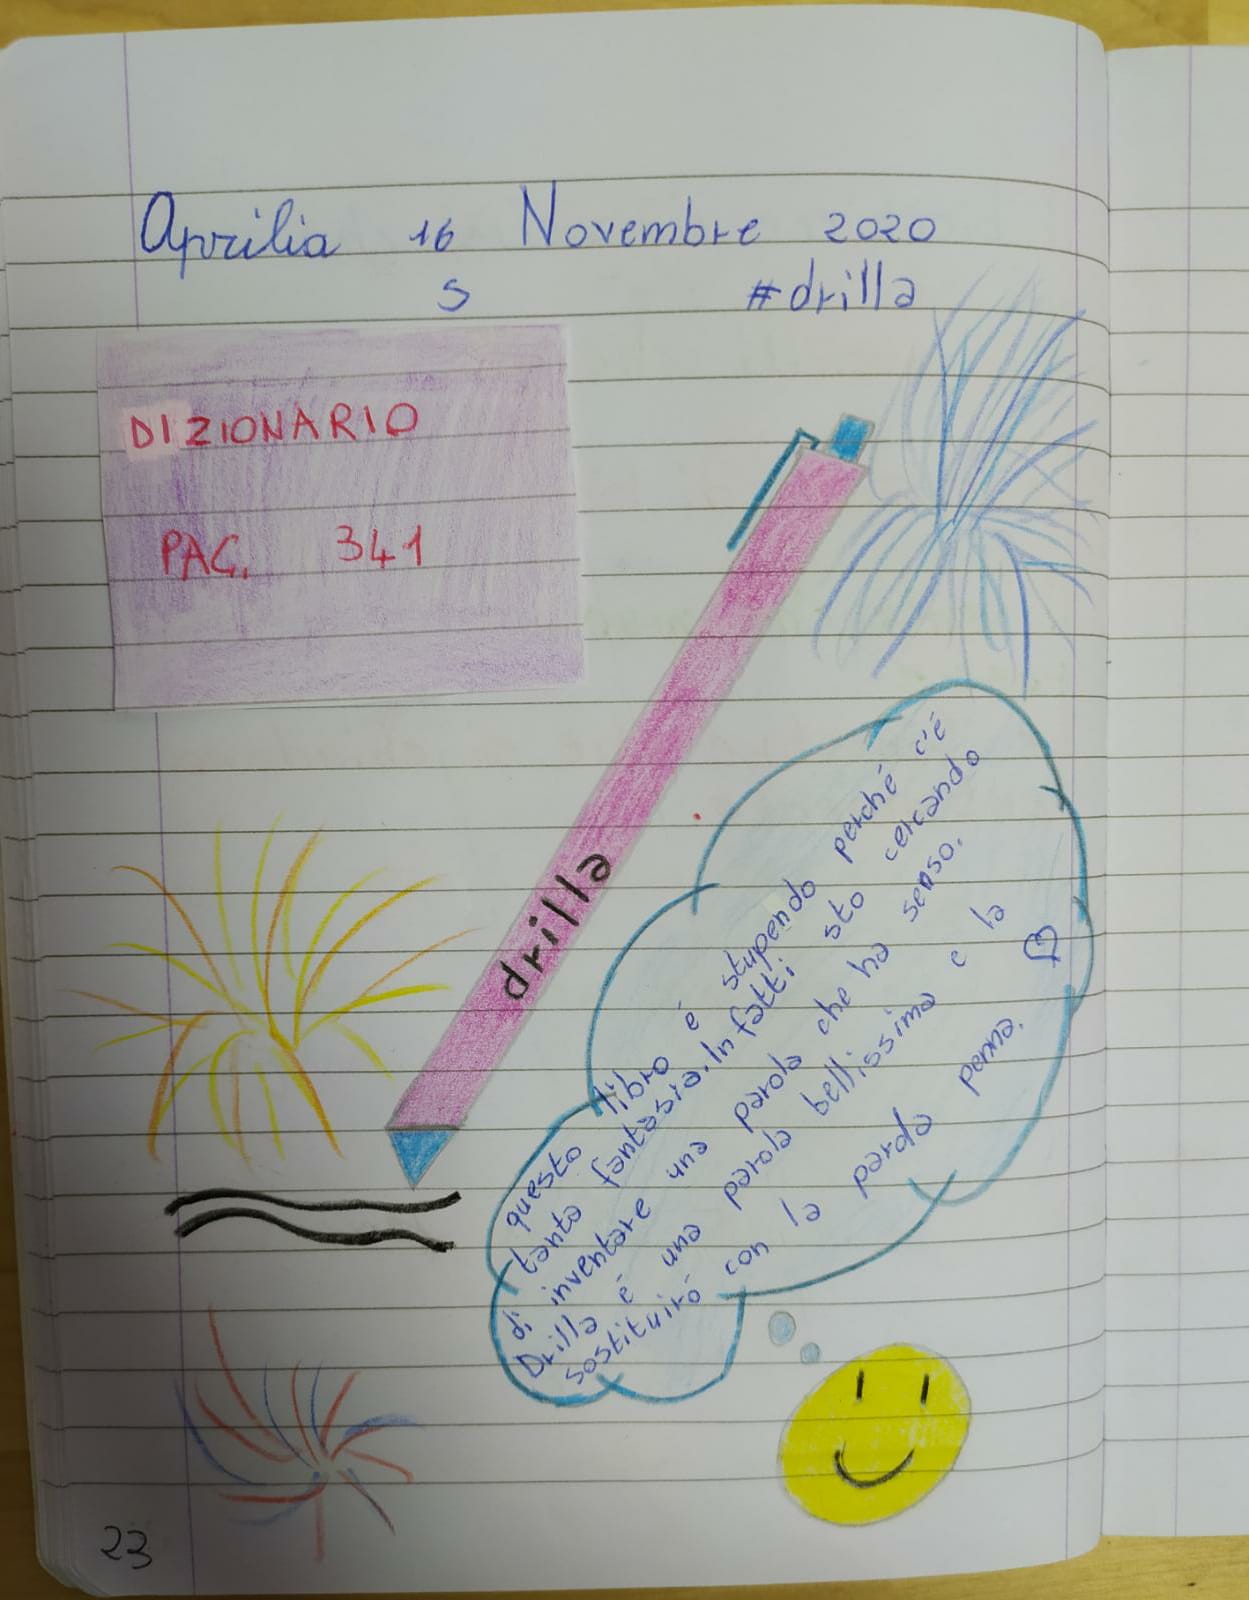 Aprilia 16 Novembre 2020
S #drilla
DIZIONARIO
PAG. 341
drilla
questo libro é stupendo perché c'é
tanta fantasia. Infatti sto cercando
di inventare una parola che ha senso.
Drilla é una parola bellissima e la
sostituiró con la parola penna.
23